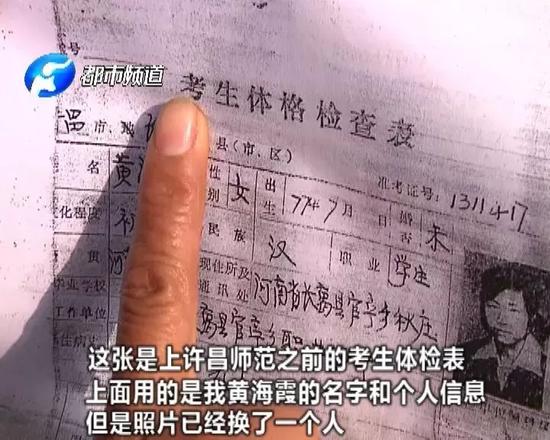 都市频道
考生体格检查表
市、
县（市、区）
准考证号：1311417
名 黄 性别 女 出生 77年7月 日 婚否 未
化程度 初 民族 汉 职业 学生
贯 河 现住所及通讯处 河南省长葛县官亭乡秋庄
毕业学校
工作单位 葛县官亭乡
这张是上许昌师范之前的考生体检表
上面用的是我黄海霞的名字和个人信息
但是照片已经换了一个人